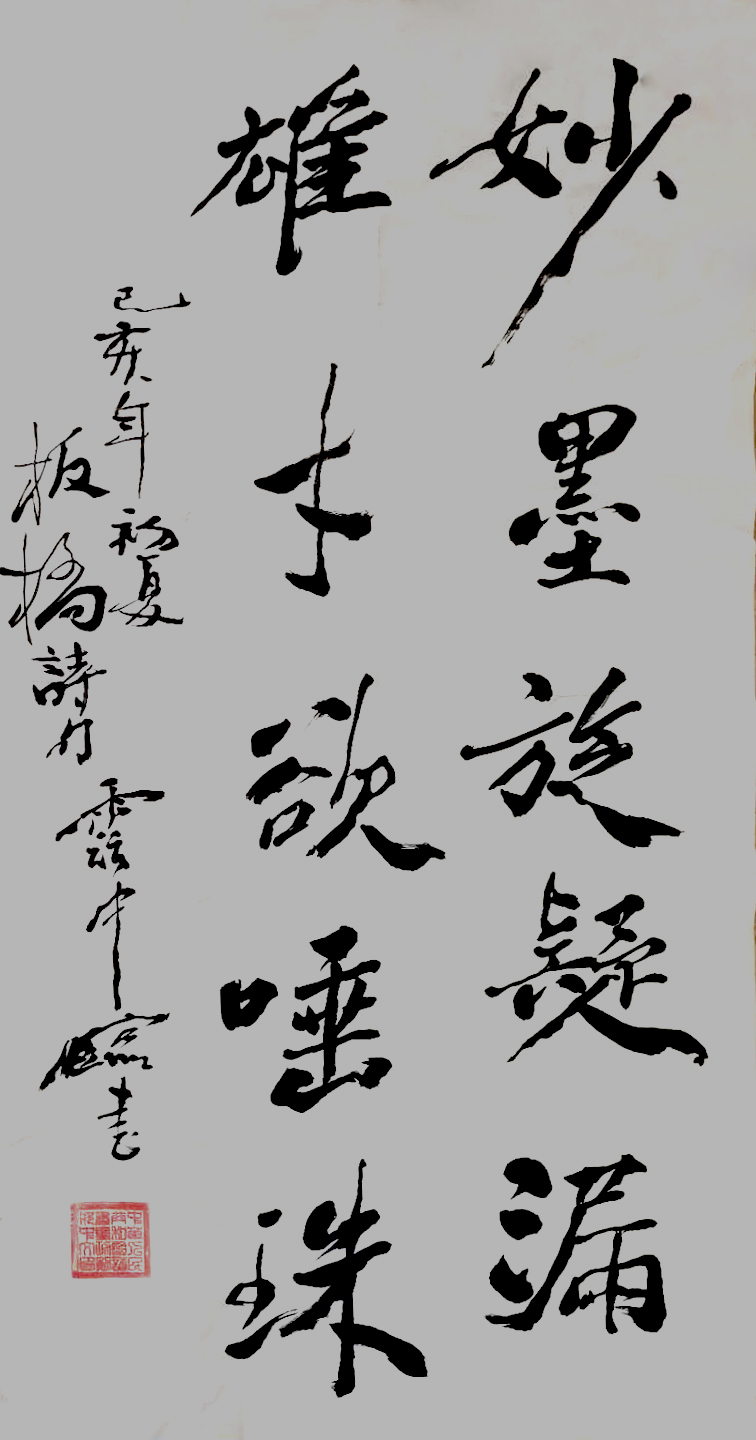 妙墨旋疑漏
雄才欲唾珠
己亥年初夏
板橋詩句
雲中臨書